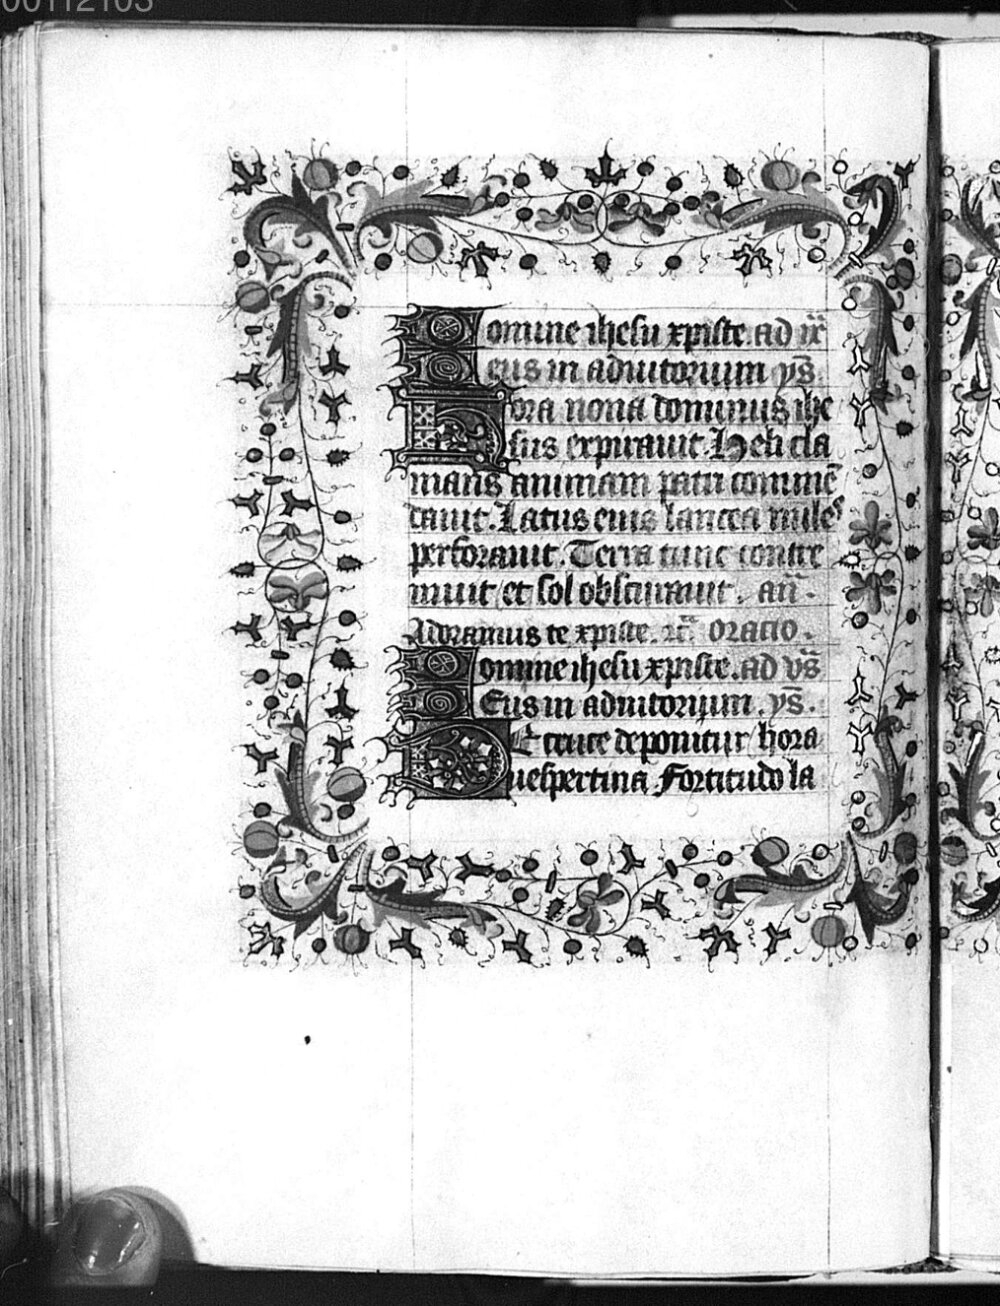 00112103
Domine ihesu xpiste. ad ix̄
Deus in adiutorium. ẏs̄.
Hora nona dominus ihe
sus expirauit. Heli cla
mans animam patri commē
dauit. Latus eius lancea miles
perforauit. Terra tunc contre
muit et sol obscurauit. an̄.
Adoramus te xpiste. oracio.
Domine ihesu xpiste. ad vs̄
DEus in adiutorium. ẏs̄.
DE cruce deponitur hora
uespertina Fortitudo la